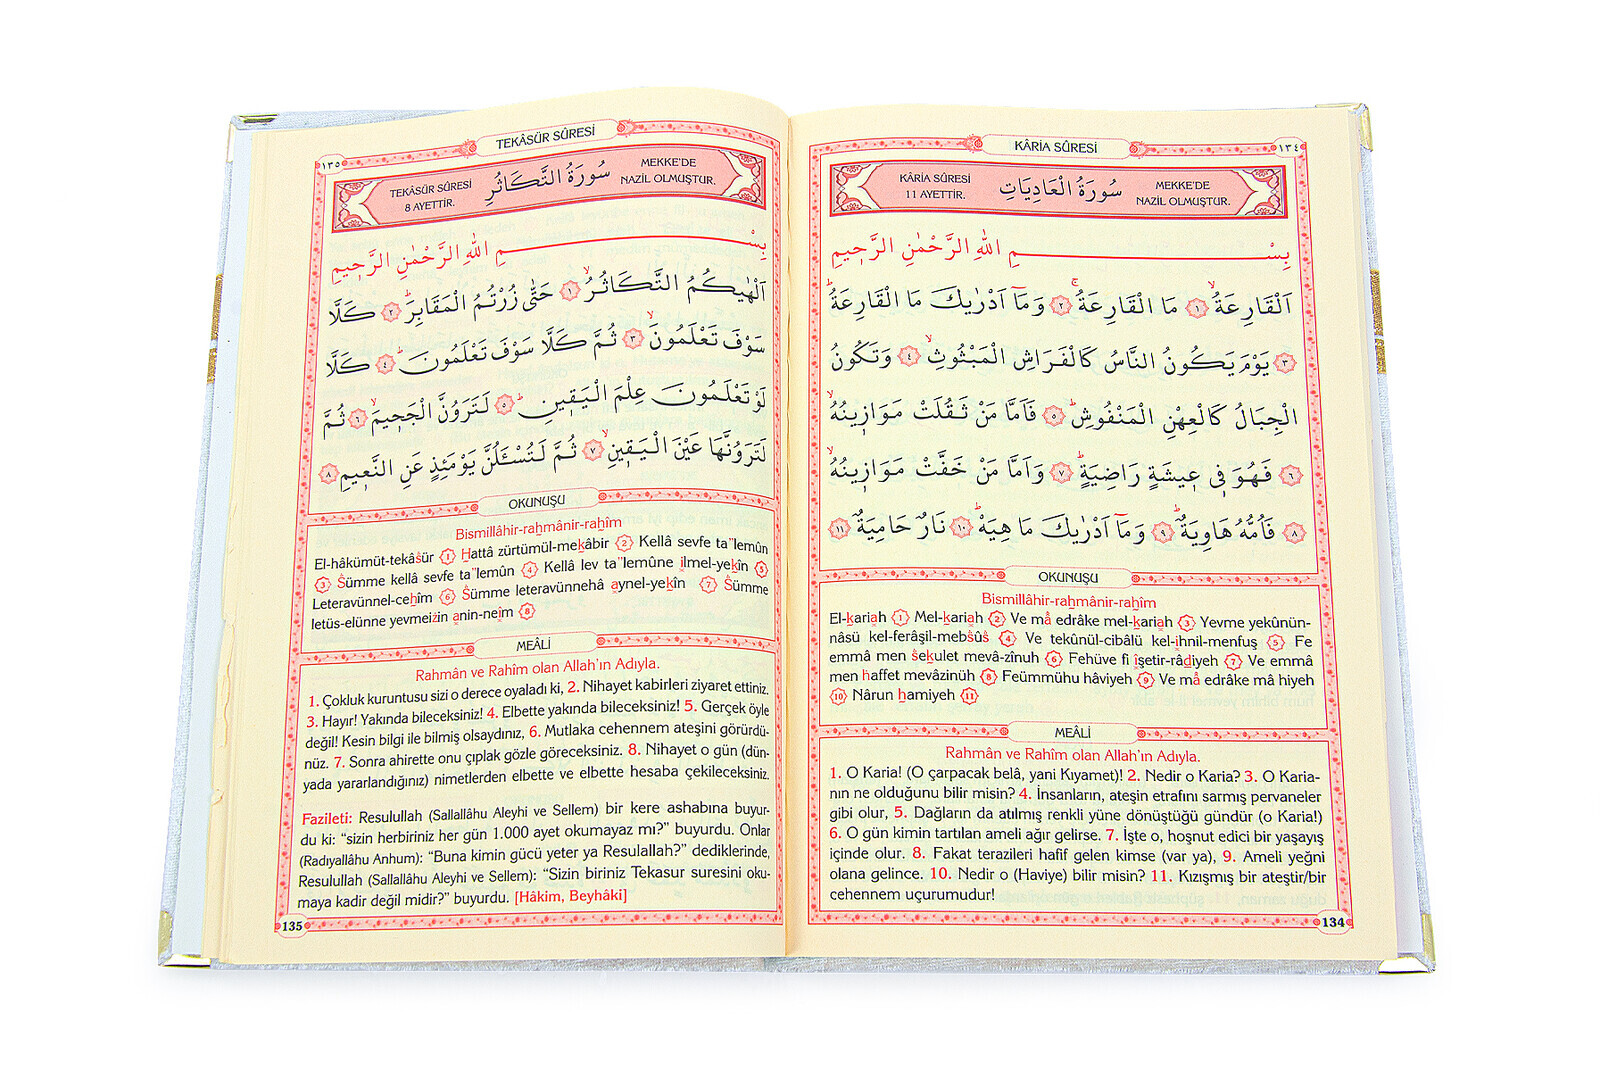 KÂRİA SÛRESİ
١٣٤
KÂRİA SÛRESİ
11 AYETTİR.
سُورَةُ الْعَادِيَاتِ
MEKKE'DE
NAZİL OLMUŞTUR.
بِسْمِ اللهِ الرَّحْمٰنِ الرَّحِيمِ
اَلْقَارِعَةُۙ ١ مَا الْقَارِعَةُۚ ٢ وَمَٓا اَدْرٰيكَ مَا الْقَارِعَةُۜ
٣ يَوْمَ يَكُونُ النَّاسُ كَالْفَرَاشِ الْمَبْثُوثِۙ ٤ وَتَكُونُ
الْجِبَالُ كَالْعِهْنِ الْمَنْفُوشِۜ ٥ فَاَمَّا مَنْ ثَقُلَتْ مَوَازِينُهُۙ
٦ فَهُوَ فِي عِيشَةٍ رَاضِيَةٍۜ ٧ وَاَمَّا مَنْ خَفَّتْ مَوَازِينُهُۙ
٨ فَاُمُّهُ هَاوِيَةٌۜ ٩ وَمَٓا اَدْرٰيكَ مَا هِيَهْۜ ١٠ نَارٌ حَامِيَةٌ ١١
OKUNUŞU
Bismillâhir-rahmânir-rahîm
El-kariah 1 Mel-kariah 2 Ve mâ edrâke mel-kariah 3 Yevme yekûnün-
nâsü kel-ferâşil-mebsûs 4 Ve tekûnül-cibâlü kel-ihnil-menfuş 5 Fe
emmâ men sekulet mevâ-zînuh 6 Fehüve fi îşetir-râdiyeh 7 Ve emmâ
men haffet mevâzinüh 8 Feümmühu hâviyeh 9 Ve mâ edrâke mâ hiyeh
10 Nârun hamiyeh 11
MEÂLİ
Rahmân ve Rahîm olan Allah'ın Adıyla.
1. O Karia! (O çarpacak belâ, yani Kıyamet)! 2. Nedir o Karia? 3. O Karia-
nın ne olduğunu bilir misin? 4. İnsanların, ateşin etrafını sarmış pervaneler
gibi olur, 5. Dağların da atılmış renkli yüne dönüştüğü gündür (o Karia!)
6. O gün kimin tartılan ameli ağır gelirse. 7. İşte o, hoşnut edici bir yaşayış
içinde olur. 8. Fakat terazileri hafif gelen kimse (var ya), 9. Ameli yeğni
olana gelince. 10. Nedir o (Haviye) bilir misin? 11. Kızışmış bir ateştir/bir
cehennem uçurumudur!
134
١٣٥
TEKÂSÜR SÛRESİ
TEKÂSÜR SÛRESİ
8 AYETTİR.
سُورَةُ التَّكَاثُرِ
MEKKE'DE
NAZİL OLMUŞTUR.
بِسْمِ اللهِ الرَّحْمٰنِ الرَّحِيمِ
اَلْهٰيكُمُ التَّكَاثُرُۙ ١ حَتّٰى زُرْتُمُ الْمَقَابِرَۜ ٢ كَلَّا
سَوْفَ تَعْلَمُونَۙ ٣ ثُمَّ كَلَّا سَوْفَ تَعْلَمُونَۜ ٤ كَلَّا
لَوْ تَعْلَمُونَ عِلْمَ الْيَقِينِۜ ٥ لَتَرَوُنَّ الْجَحِيمَۙ ٦ ثُمَّ
لَتَرَوُنَّهَا عَيْنَ الْيَقِينِۙ ٧ ثُمَّ لَتُسْـَٔلُنَّ يَوْمَئِذٍ عَنِ النَّعِيمِ ٨
OKUNUŞU
Bismillâhir-rahmânir-rahîm
El-hâkümüt-tekâsür 1 Hattâ zürtümül-mekâbir 2 Kellâ sevfe ta"lemûn
3 Sümme kellâ sevfe ta"lemûn 4 Kellâ lev ta"lemûne ilmel-yekîn 5
Leteravünnel-cehîm 6 Sümme leteravünnehâ aynel-yekîn 7 Sümme
letüs-elünne yevmeizin anin-neim 8
MEÂLİ
Rahmân ve Rahîm olan Allah'ın Adıyla.
1. Çokluk kuruntusu sizi o derece oyaladı ki, 2. Nihayet kabirleri ziyaret ettiniz.
3. Hayır! Yakında bileceksiniz! 4. Elbette yakında bileceksiniz! 5. Gerçek öyle
değil! Kesin bilgi ile bilmiş olsaydınız, 6. Mutlaka cehennem ateşini görürdü-
nüz. 7. Sonra ahirette onu çıplak gözle göreceksiniz. 8. Nihayet o gün (dün-
yada yararlandığınız) nimetlerden elbette ve elbette hesaba çekileceksiniz.
Fazileti: Resulullah (Sallallâhu Aleyhi ve Sellem) bir kere ashabına buyur-
du ki: "sizin herbiriniz her gün 1.000 ayet okumayaz mı?" buyurdu. Onlar
(Radıyallâhu Anhum): "Buna kimin gücü yeter ya Resulallah?" dediklerinde,
Resulullah (Sallallâhu Aleyhi ve Sellem): "Sizin biriniz Tekasur suresini oku-
maya kadir değil midir?" buyurdu. [Hâkim, Beyhâki]
135